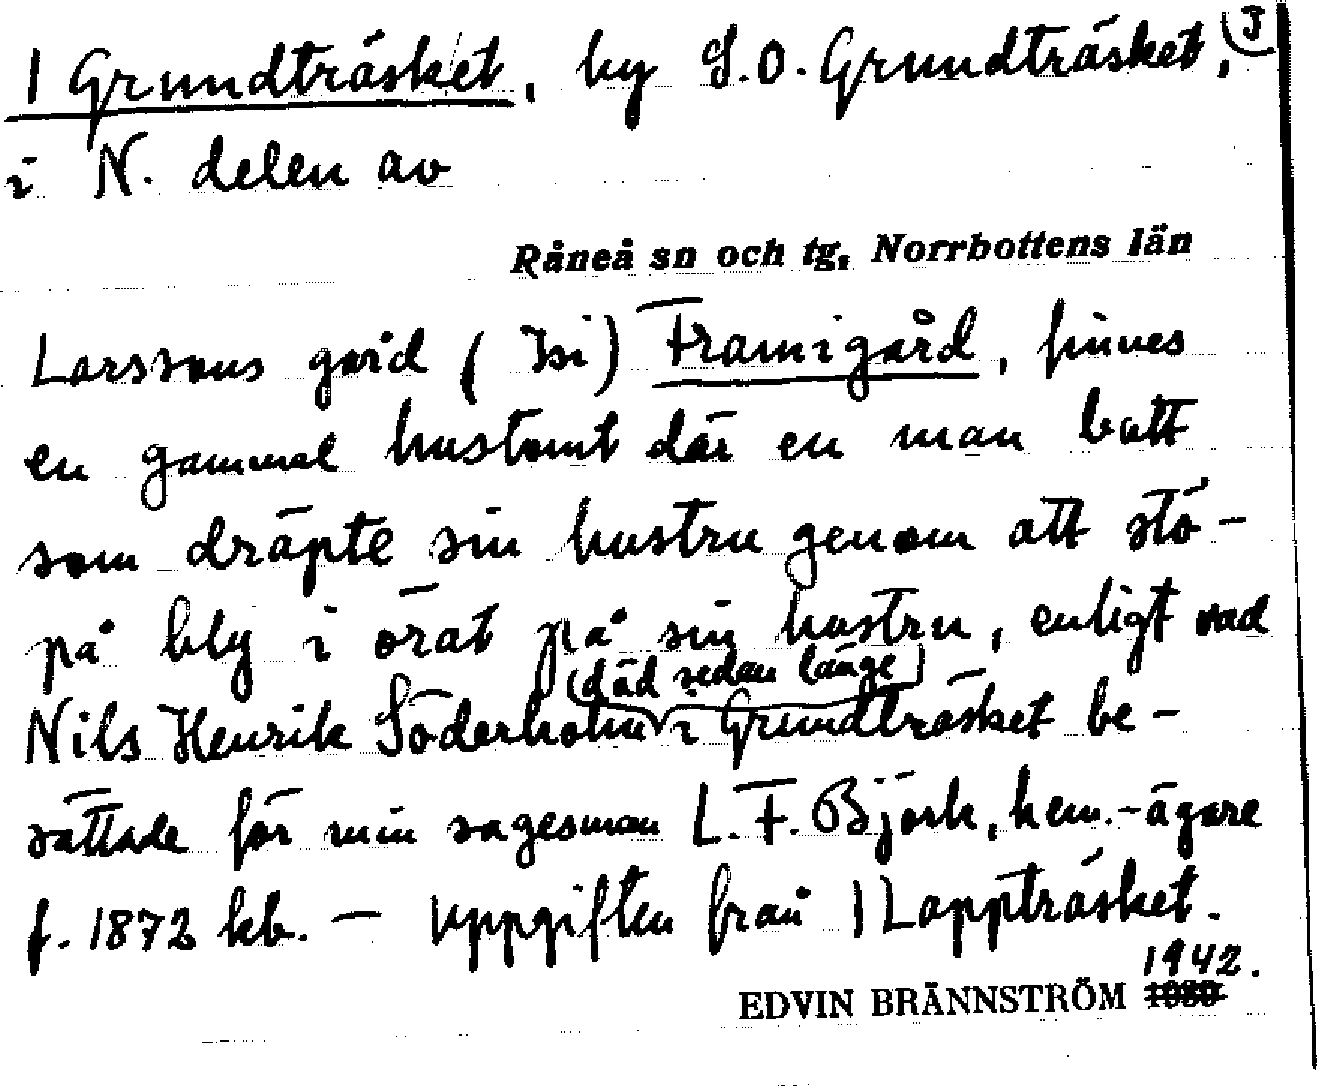 1 Grundträsket, by S.O. Grundträsket, J
i N. delen av
Råneå sn och tg, Norrbottens län
Larssons gård ( ) Framigård, finnes
en gammal hustomt där en man bott
som dräpte sin hustru genom att stö-
pa bly i örat på sin hustru, enligt vad
(död sedan länge)
Nils Henrik Söderholm i Grundträsket be-
rättade för min sagesman L. F. Björk, hem.-ägare
f. 1872 kb. — Uppgiften från 1 Lappträsket.
1942.
EDVIN BRÄNNSTRÖM 1939